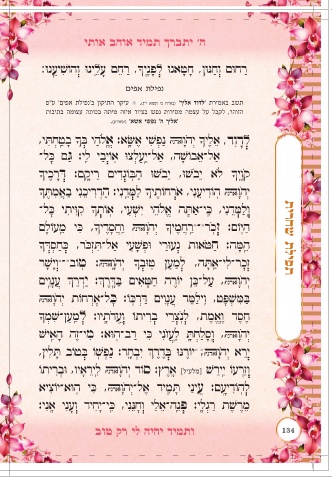 ה' יתברך תמיד אוהב אותי
רַחוּם וְחַנּוּן, חָטָאנוּ לְפָנֶיךָ, רַחֵם עָלֵינוּ וְהוֹשִׁיעֵנוּ:
נפילת אפים
לְדָוִד, אֵלֶיךָ יְהֹוָה נַפְשִׁי אֶשָּׂא: אֱלֹהַי בְּךָ בָטַחְתִּי,
אַל־אֵבוֹשָׁה, אַל־יַעַלְצוּ אוֹיְבַי לִי: גַּם כָּל־
קֹוֶיךָ לֹא יֵבֹשׁוּ, יֵבֹשׁוּ הַבּוֹגְדִים רֵיקָם: דְּרָכֶיךָ
יְהֹוָה הוֹדִיעֵנִי, אֹרְחוֹתֶיךָ לַמְּדֵנִי: הַדְרִיכֵנִי בַאֲמִתֶּךָ
וְלַמְּדֵנִי, כִּי־אַתָּה אֱלֹהֵי יִשְׁעִי, אוֹתְךָ קִוִּיתִי כָּל־
הַיּוֹם: זְכֹר־רַחֲמֶיךָ יְהֹוָה וַחֲסָדֶיךָ, כִּי מֵעוֹלָם
הֵמָּה: חַטֹּאות נְעוּרַי וּפְשָׁעַי אַל־תִּזְכֹּר, כְּחַסְדְּךָ
זְכָר־לִי־אַתָּה, לְמַעַן טוּבְךָ יְהֹוָה: טוֹב־וְיָשָׁר
יְהֹוָה, עַל־כֵּן יוֹרֶה חַטָּאִים בַּדָּרֶךְ: יַדְרֵךְ עֲנָוִים
בַּמִּשְׁפָּט, וִילַמֵּד עֲנָוִים דַּרְכּוֹ: כָּל־אָרְחוֹת יְהֹוָה
חֶסֶד וֶאֱמֶת, לְנֹצְרֵי בְרִיתוֹ וְעֵדֹתָיו: לְמַעַן־שִׁמְךָ
יְהֹוָה, וְסָלַחְתָּ לַעֲוֹנִי כִּי רַב־הוּא: מִי־זֶה הָאִישׁ
יְרֵא יְהֹוָה, יוֹרֶנּוּ בְּדֶרֶךְ יִבְחָר: נַפְשׁוֹ בְּטוֹב תָּלִין,
וְזַרְעוֹ יִירַשׁ [מלעיל] אָרֶץ: סוֹד יְהֹוָה לִירֵאָיו, וּבְרִיתוֹ
לְהוֹדִיעָם: עֵינַי תָּמִיד אֶל־יְהֹוָה, כִּי הוּא־יוֹצִיא
מֵרֶשֶׁת רַגְלָי: פְּנֵה־אֵלַי וְחָנֵּנִי, כִּי־יָחִיד וְעָנִי אָנִי:
ותמיד יהיה לי רק טוב
תפילת שחרית
134